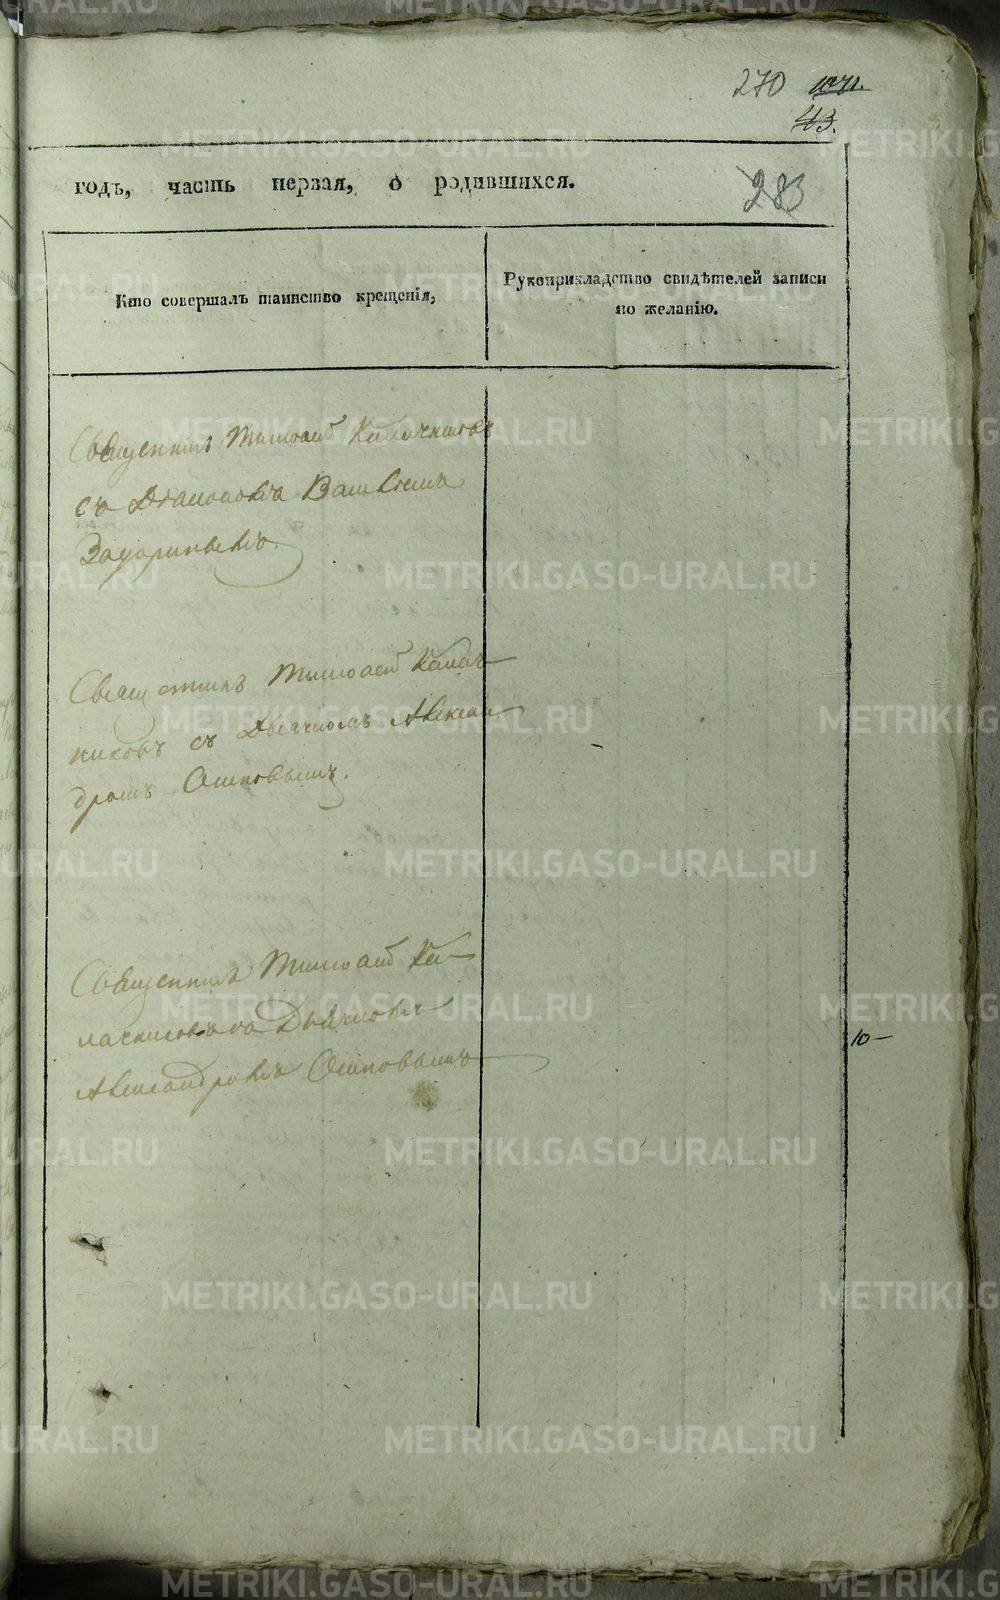 270
43.
годъ, часть первая, о родившихся.
283
Кто совершалъ таинство крещенія,
Рукоприкладство свидѣтелей записи
по желанію.
Священникъ Тимоѳей Калачников
съ Діакономъ
Священникъ Тимоѳей Калач-
никовъ съ Дьячкомъ Алексан-
дромъ Осиповымъ.
Священникъ Тимоѳей Ка-
лачниковъ съ Дьячкомъ
Александромъ Осиповымъ
10-
METRIKI.GASO-URAL.RU